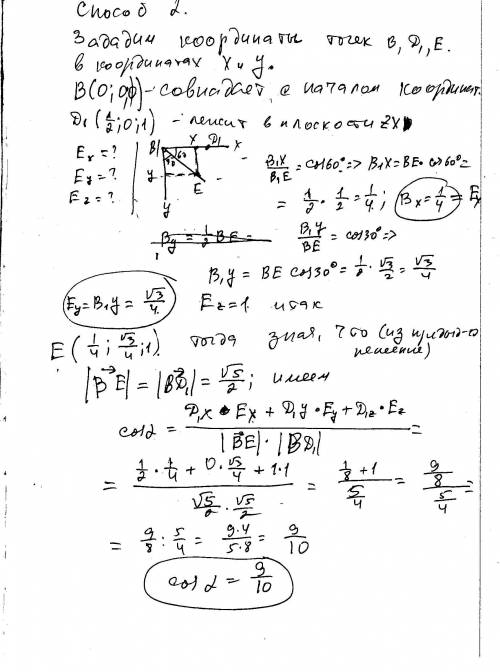 Способ 2.
Зададим координаты точек B, D₁, E.
в координатах x и y.
B(0; 0; 0) - совпадает с началом координат.
D₁ (1/2; 0; 1) - лежит в плоскости ZX
Ex = ?
Ey = ?
Ez = ?
B₁ X D₁ x
30 60
y E
y
B₁X/B₁E = cos60° => B₁X = BE · cos60° =
= 1/2 · 1/2 = 1/4; Bx = 1/4 = Ex
By = 1/2 BE =
B₁y/BE = cos30° =>
B₁y = BE cos30° = 1/2 · √3/2 = √3/4
Ey = B₁y = √3/4. Ez = 1. итак
E (1/4; √3/4; 1). тогда зная, что (из предыд-го
решения)
|BE| = |BD₁| = √5/2; имеем
cos α = (D₁x • Ex + D₁y • Ey + D₁z • Ez)/(|BE| · |BD₁|) =
= (1/2 · 1/4 + 0 · √3/4 + 1·1)/(√5/2 · √5/2) = (1/8 + 1)/(5/4) = (9/8)/(5/4) =
= 9/8 : 5/4 = 9·4/5·8 = 9/10
cos α = 9/10